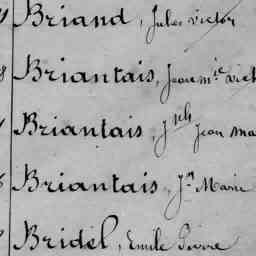 Briand, Jules Victor
Briantais, Jean Mie Vict
Briantais, Jph Jean Ma
Briantais, Jn Marie
Bridel, Emile Pierre